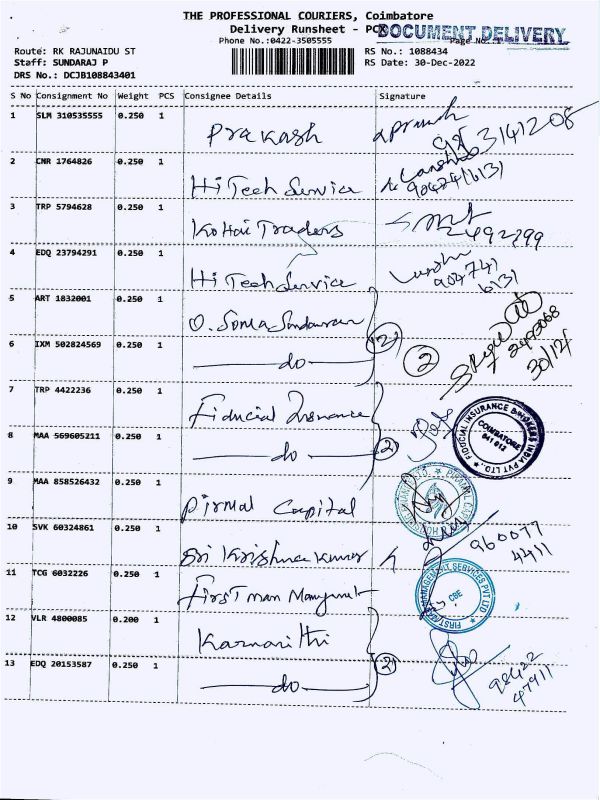 THE PROFESSIONAL COURIERS, Coimbatore
Delivery Runsheet - PCX
DOCUMENT DELIVERY
Phone No.:0422-3505555
Page No.
Route: RK RAJUNAIDU ST
RS No.: 1088434
Staff: SUNDARAJ P
RS Date: 30-Dec-2022
DRS No.: DCJB108843401
S No Consignment No Weight PCS Consignee Details Signature
1 SLM 310535555 0.250 1 Prakash
2 CNR 1764826 0.250 1 Hi Tech Service
3 TRP 5794628 0.250 1 Kothari Traders
4 EDQ 23794291 0.250 1 Hi Tech Service
904741
6131
5 ART 1832001 0.250 1
6 IXM 502824569 0.250 1 do (2) (2)
30/12/
7 TRP 4422236 0.250 1 Fiducial Insurance
FIDUCIAL INSURANCE BROKERS INDIA PVT LTD.,
COIMBATORE
641 012
8 MAA 569605211 0.250 1 do (2)
9 MAA 858526432 0.250 1 Pirmal Capital
10 SVK 60324861 0.250 1 Sri Krishna Kumar
960077
4411
11 TCG 6032226 0.250 1 First man Mangmnt
FIRST MAN MANAGEMENT SERVICES PVT LTD
CBE
12 VLR 4800085 0.200 1
13 EDQ 20153587 0.250 1 do (2)
98422
47911